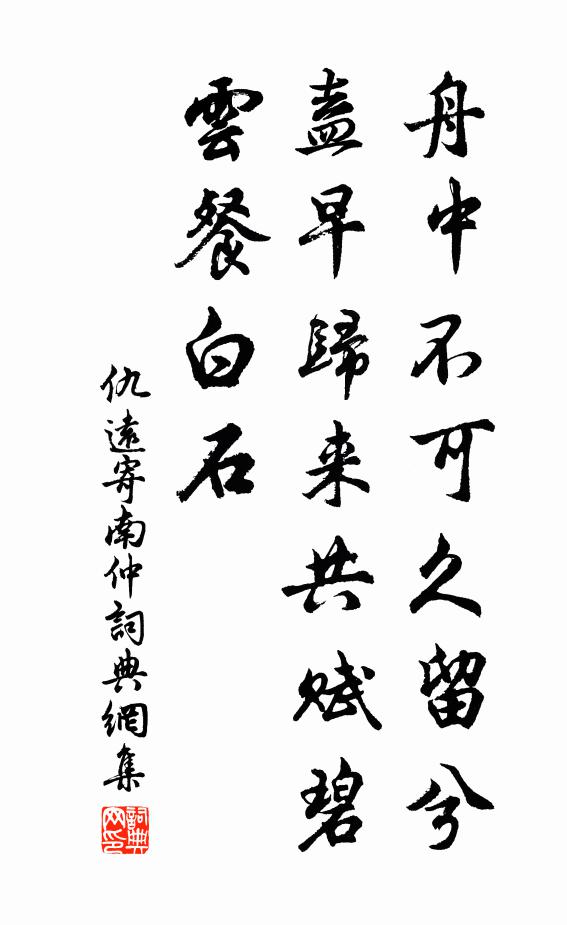 舟中不可久留兮
盍早歸来共賦碧
雲餐白石
仇遠寄南仲詞典網集
詞典网印